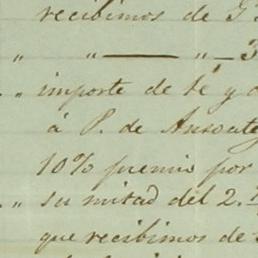 recibimos de G
" " — " — 3
" importe de té y
á P. de Ansoate
10% premio por
" su mitad del 2.
que recibimos de